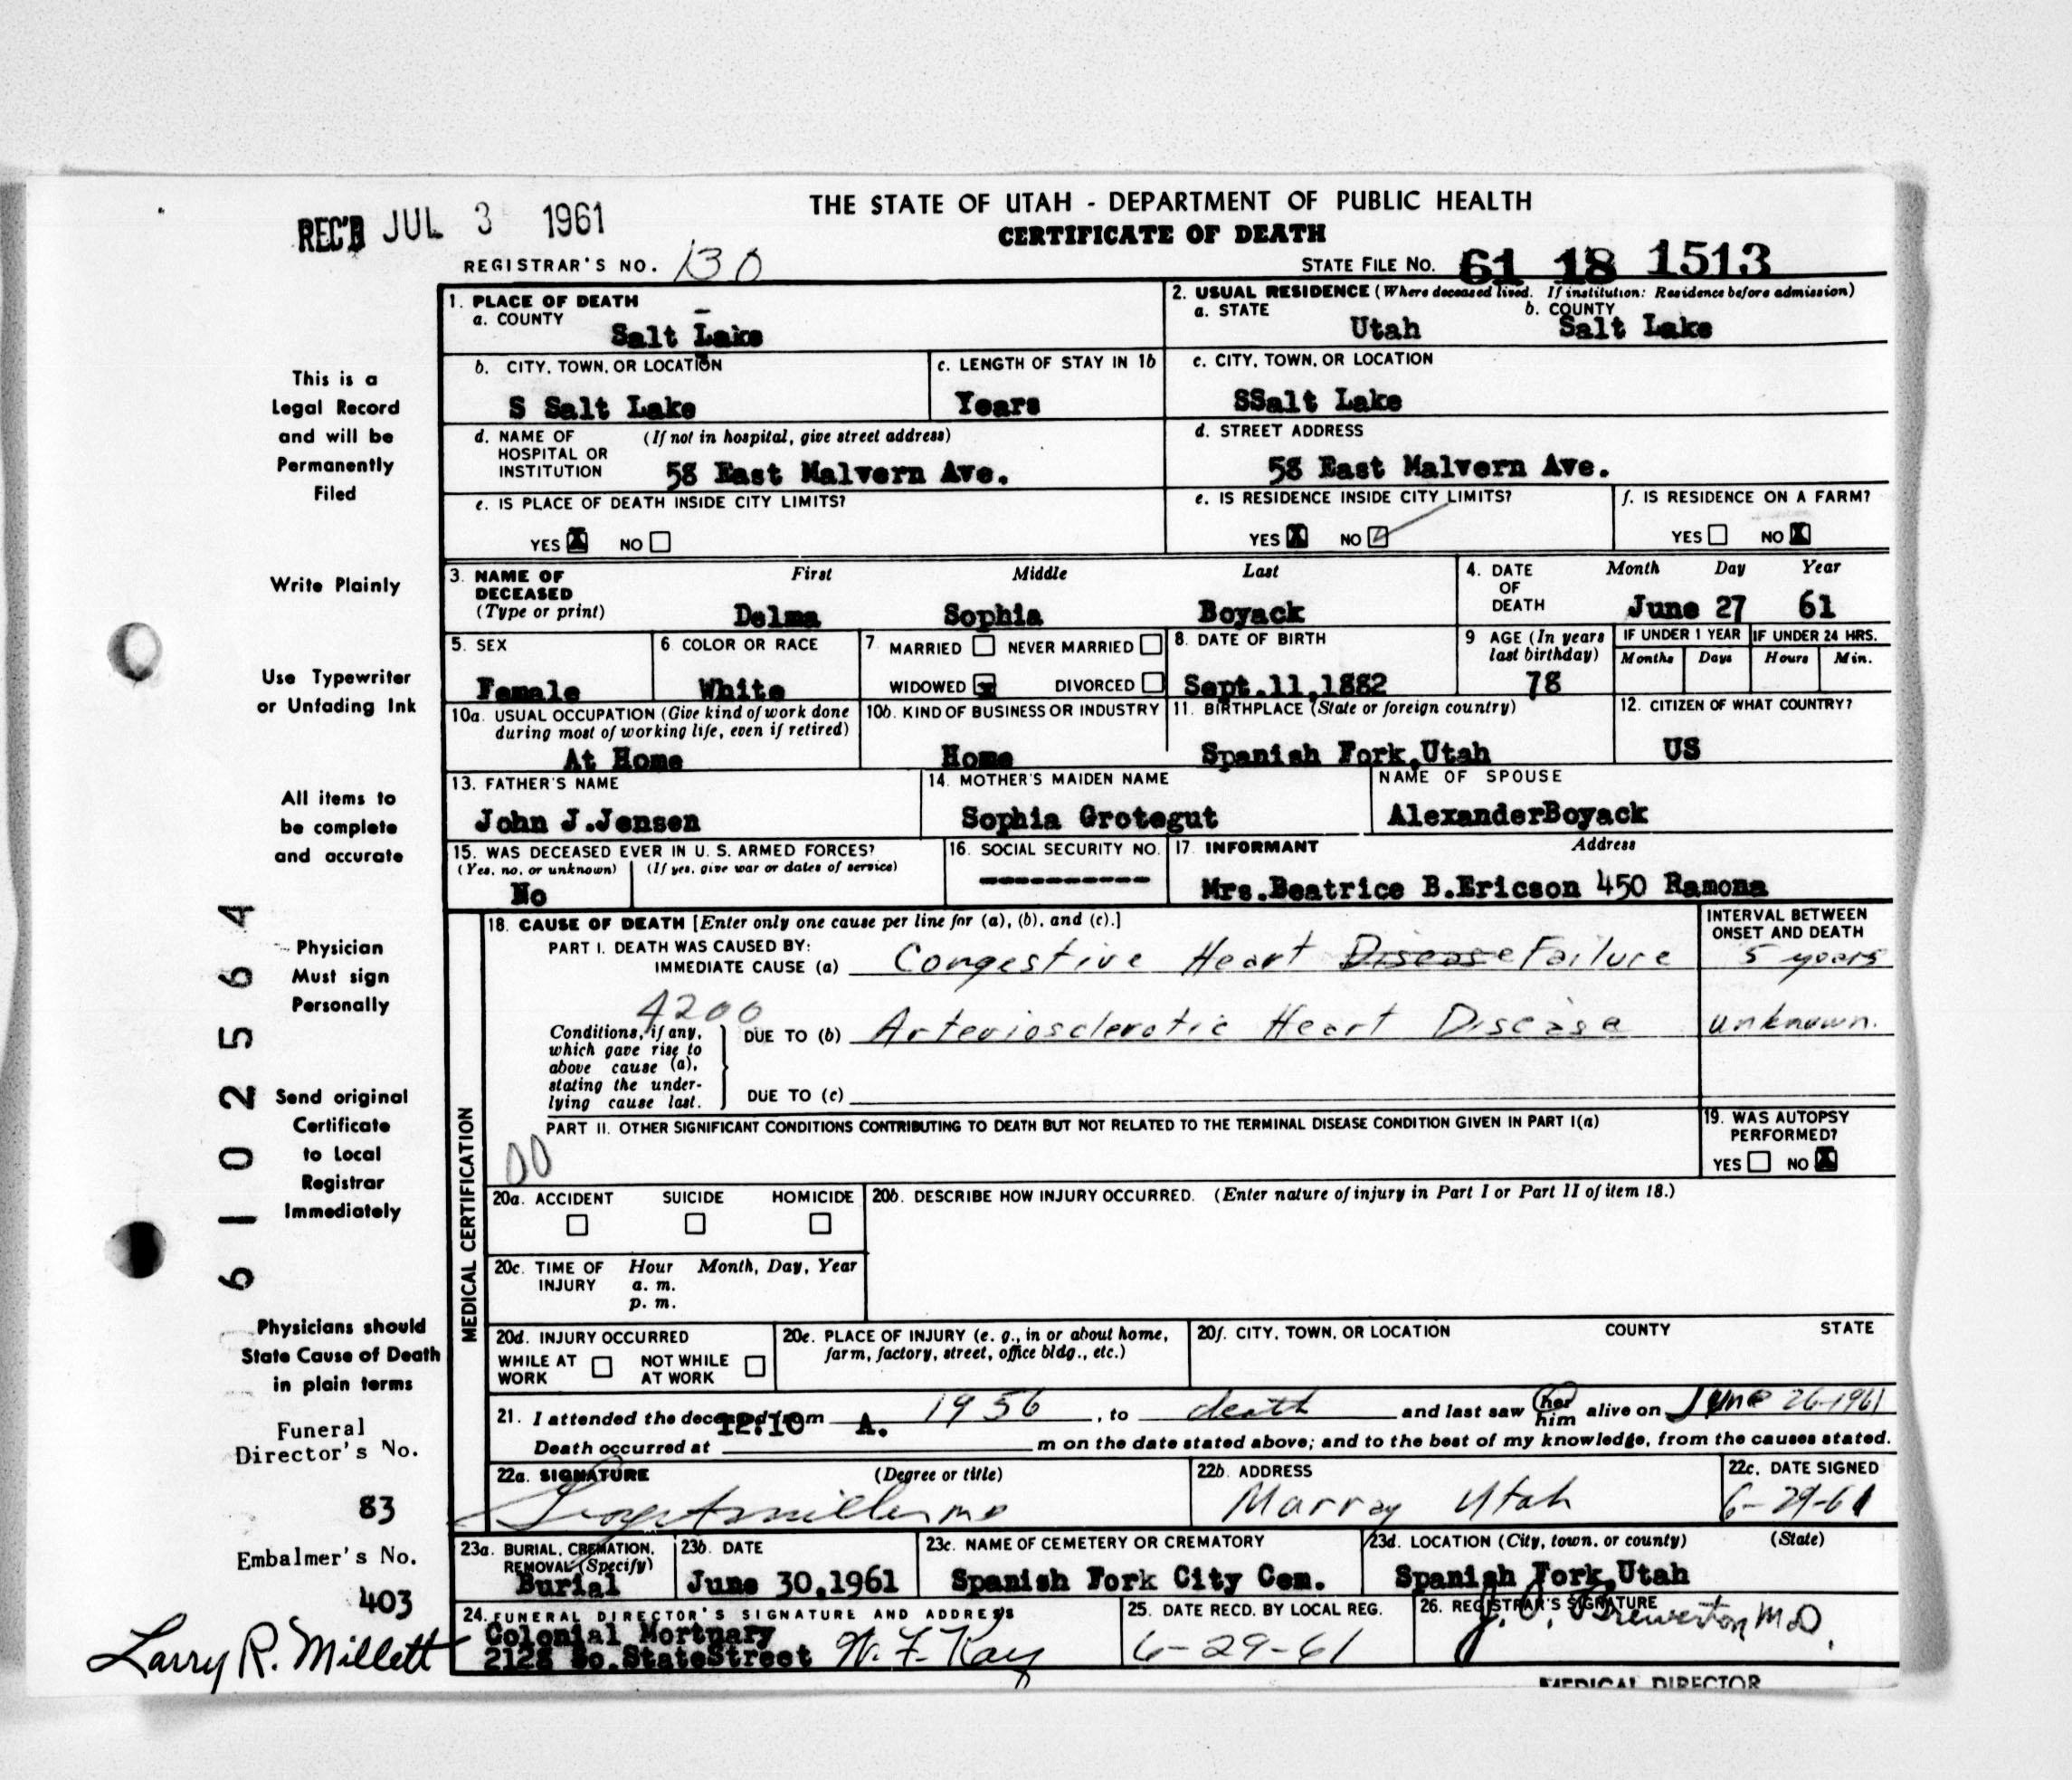 REC'D JUL 3 1961
THE STATE OF UTAH - DEPARTMENT OF PUBLIC HEALTH
CERTIFICATE OF DEATH
REGISTRAR'S NO. 130
STATE FILE NO. 61 18 1513
1. PLACE OF DEATH
a. COUNTY
Salt Lake
2. USUAL RESIDENCE (Where deceased lived. If institution: Residence before admission)
a. STATE b. COUNTY
Utah Salt Lake
b. CITY, TOWN, OR LOCATION
S Salt Lake
c. LENGTH OF STAY IN 1b
Years
c. CITY, TOWN, OR LOCATION
SSalt Lake
d. NAME OF HOSPITAL OR INSTITUTION (If not in hospital, give street address)
58 East Malvern Ave.
d. STREET ADDRESS
58 East Malvern Ave.
e. IS PLACE OF DEATH INSIDE CITY LIMITS?
YES X NO
e. IS RESIDENCE INSIDE CITY LIMITS?
YES X NO
f. IS RESIDENCE ON A FARM?
YES NO X
3. NAME OF DECEASED (Type or print)
First Middle Last
Delma Sophia Boyack
4. DATE OF DEATH
Month Day Year
June 27 61
5. SEX
Female
6 COLOR OR RACE
White
7 MARRIED NEVER MARRIED
WIDOWED X DIVORCED
8. DATE OF BIRTH
Sept.11,1882
9 AGE (In years last birthday)
78
IF UNDER 1 YEAR
Months Days
IF UNDER 24 HRS.
Hours Min.
10a. USUAL OCCUPATION (Give kind of work done during most of working life, even if retired)
At Home
10b. KIND OF BUSINESS OR INDUSTRY
Home
11. BIRTHPLACE (State or foreign country)
Spanish Fork,Utah
12. CITIZEN OF WHAT COUNTRY?
US
13. FATHER'S NAME
John J.Jensen
14. MOTHER'S MAIDEN NAME
Sophia Grotegut
NAME OF SPOUSE
AlexanderBoyack
15. WAS DECEASED EVER IN U. S. ARMED FORCES?
(Yes, no, or unknown) (If yes, give war or dates of service)
No
16. SOCIAL SECURITY NO.
----------
17. INFORMANT Address
Mrs.Beatrice B.Ericson 450 Ramona
MEDICAL CERTIFICATION
18. CAUSE OF DEATH [Enter only one cause per line for (a), (b), and (c).]
INTERVAL BETWEEN ONSET AND DEATH
PART I. DEATH WAS CAUSED BY:
IMMEDIATE CAUSE (a) Congestive Heart Disease Failure 5 years
4200
Conditions, if any, which gave rise to above cause (a), stating the underlying cause last.
DUE TO (b) Arteriosclerotic Heart Disease unknown.
DUE TO (c)
PART II. OTHER SIGNIFICANT CONDITIONS CONTRIBUTING TO DEATH BUT NOT RELATED TO THE TERMINAL DISEASE CONDITION GIVEN IN PART I(a)
00
19. WAS AUTOPSY PERFORMED?
YES NO X
20a. ACCIDENT SUICIDE HOMICIDE
20b. DESCRIBE HOW INJURY OCCURRED. (Enter nature of injury in Part I or Part II of item 18.)
20c. TIME OF INJURY Hour Month, Day, Year
a. m.
p. m.
20d. INJURY OCCURRED
WHILE AT WORK NOT WHILE AT WORK
20e. PLACE OF INJURY (e. g., in or about home, farm, factory, street, office bldg., etc.)
20f. CITY, TOWN, OR LOCATION COUNTY STATE
21. I attended the deceased from 1956, to death and last saw her him alive on June 26-1961
12:10 A.
Death occurred at m on the date stated above; and to the best of my knowledge, from the causes stated.
22a. SIGNATURE (Degree or title)
22b. ADDRESS
Murray Utah
22c. DATE SIGNED
6-29-61
23a. BURIAL, CREMATION, REMOVAL (Specify)
Burial
23b. DATE
June 30,1961
23c. NAME OF CEMETERY OR CREMATORY
Spanish Fork City Cem.
23d. LOCATION (City, town, or county) (State)
Spanish Fork,Utah
24. FUNERAL DIRECTOR'S SIGNATURE AND ADDRESS
Colonial Mortuary
2128 So.StateStreet W. F. Kay
25. DATE RECD. BY LOCAL REG.
6-29-61
26. REGISTRAR'S SIGNATURE
J. O. Brewerton M.D.
MEDICAL DIRECTOR
This is a
Legal Record
and will be
Permanently
Filed
Write Plainly
Use Typewriter
or Unfading Ink
All items to
be complete
and accurate
Physician
Must sign
Personally
Send original
Certificate
to Local
Registrar
Immediately
Physicians should
State Cause of Death
in plain terms
Funeral
Director's No.
83
Embalmer's No.
403
Larry R. Millett
6102564